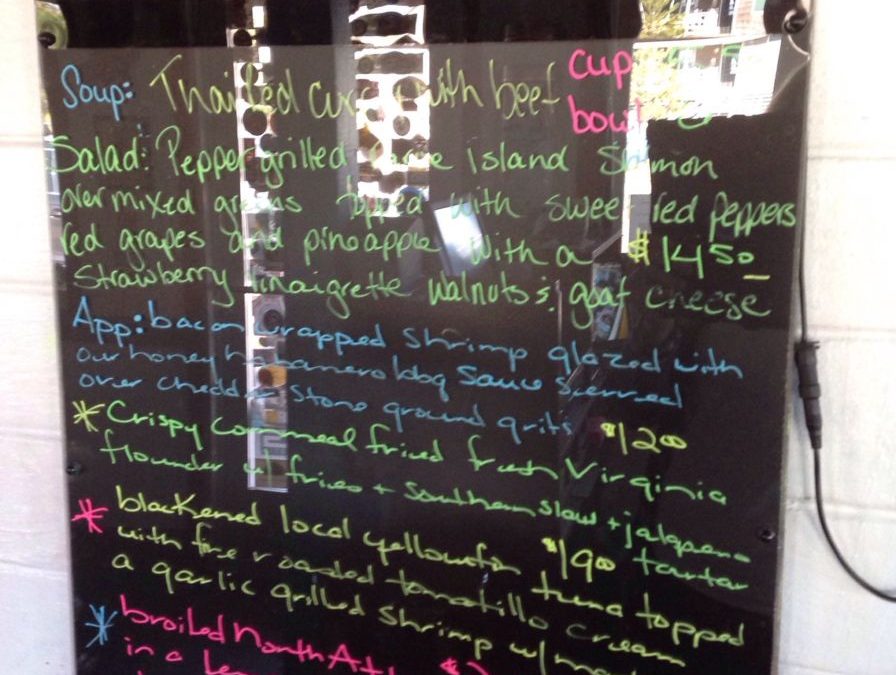 Soup: Thai Red curry with beef cup
bowl
Salad: Pepper grilled Island Salmon
over mixed greens topped with sweet red peppers
red grapes and pineapple with a $1450
Strawberry vinaigrette walnuts & goat cheese
App: bacon wrapped shrimp glazed with
our honey habanero bbq sauce served
over cheddar stone ground grits $1200
* Crispy cornmeal fried fresh Virginia
flounder w/ fries + Southern slaw + jalapeno
tartar $1900
* blackened local yellowfin tuna topped
with fire roasted tomatillo cream
a garlic grilled shrimp w/
* broiled North Atl
in a